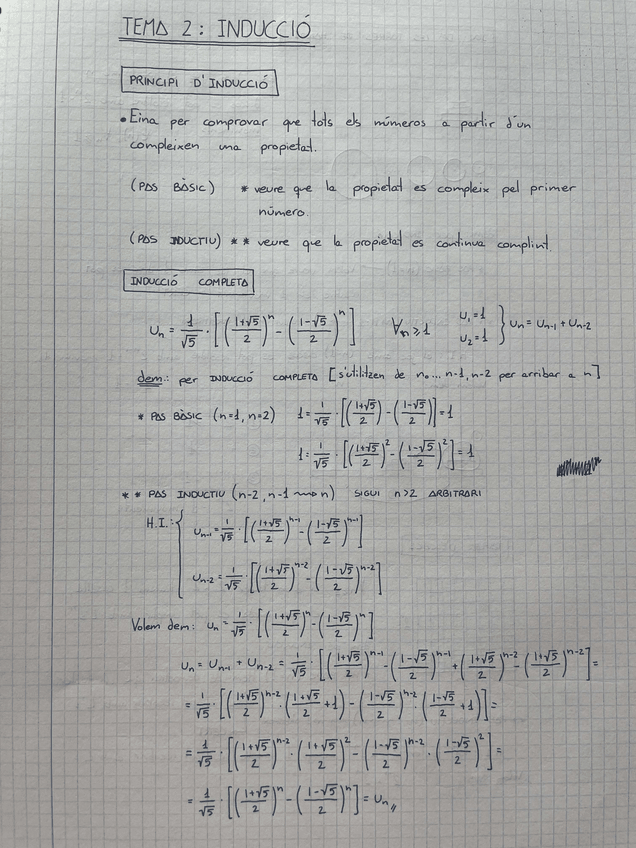 TEMA 2: INDUCCIÓ
PRINCIPI D'INDUCCIÓ
• Eina per comprovar que tots els números a partir d'un
compleixen una propietat.
(PAS BÀSIC) * veure que la propietat es compleix pel primer
número.
(PAS INDUCTIU) ** veure que la propietat es continua complint.
INDUCCIÓ COMPLETA
Un = 1/√5 · [((1+√5)/2)^n - ((1-√5)/2)^n] ∀n ≥ 1 U1 = 1 U2 = 1 } Un = Un-1 + Un-2
dem: per INDUCCIÓ COMPLETA [s'utilitzen de n0... n-1, n-2 per arribar a n]
* PAS BÀSIC (n=1, n=2) 1 = 1/√5 · [((1+√5)/2) - ((1-√5)/2)] = 1
1 = 1/√5 · [((1+√5)/2)^2 - ((1-√5)/2)^2] = 1
** PAS INDUCTIU (n-2, n-1 ⟿ n) SIGUI n>2 ARBITRARI
H.I.: { Un-1 = 1/√5 · [((1+√5)/2)^n-1 - ((1-√5)/2)^n-1]
Un-2 = 1/√5 · [((1+√5)/2)^n-2 - ((1-√5)/2)^n-2]
Volem dem: Un = 1/√5 · [((1+√5)/2)^n - ((1-√5)/2)^n]
Un = Un-1 + Un-2 = 1/√5 · [((1+√5)/2)^n-1 - ((1-√5)/2)^n-1 + ((1+√5)/2)^n-2 - ((1+√5)/2)^n-2] =
= 1/√5 · [((1+√5)/2)^n-2 · ((1+√5)/2 + 1) - ((1-√5)/2)^n-2 · ((1-√5)/2 + 1)] =
= 1/√5 · [((1+√5)/2)^n-2 · ((1+√5)/2)^2 - ((1-√5)/2)^n-2 · ((1-√5)/2)^2] =
= 1/√5 · [((1+√5)/2)^n - ((1-√5)/2)^n] = Un //